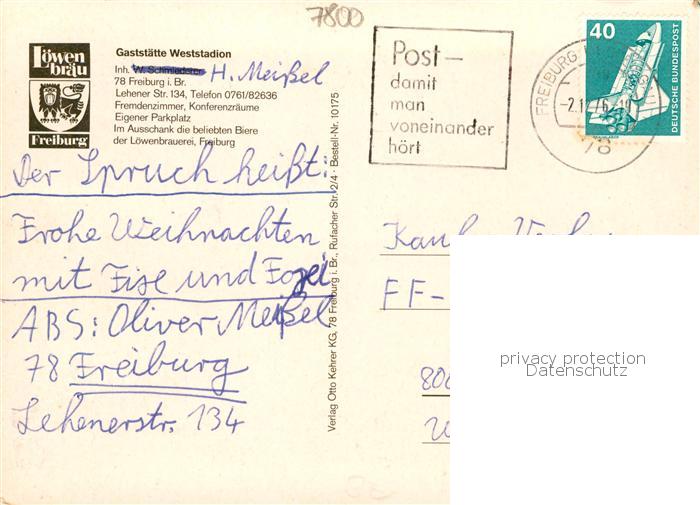 7800
Löwen
bräu
Freiburg
Gaststätte Weststadion
Inh. W. Schmiederer H. Meißel
78 Freiburg i. Br.
Lehener Str. 134, Telefon 0761/82636
Fremdenzimmer, Konferenzräume
Eigener Parkplatz
Im Ausschank die beliebten Biere
der Löwenbrauerei, Freiburg
Post –
damit
man
voneinander
hört
FREIBURG
-2.12.76-19
78
40
DEUTSCHE BUNDESPOST
Der Spruch heißt:
Frohe Weihnachten
mit Fixe und Foxi
ABS: Oliver Meißel
78 Freiburg
Lehenerstr. 134
Verlag Otto Kehrer KG, 78 Freiburg i. Br., Rufacher Str. 2/4 · Bestell-Nr. 10175
FF-
privacy protection
Datenschutz